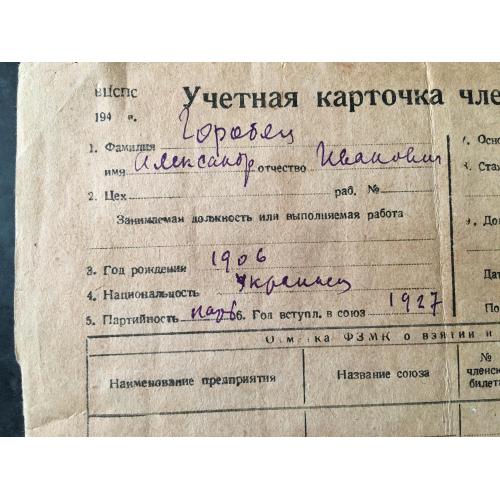 ВЦСПС
Учетная карточка чле
194 г.
1. Фамилия Горобец
имя Александр отчество Иванович
2. Цех раб. №
Занимаемая должность или выполняемая работа
3. Год рождения 1906
4. Национальность украинец
5. Партийность 6. Год вступл. в союз 1927
Отметка ФЗМК о взятии и
Наименование предприятия
Название союза
№
членск
билет
. Осно
. Ста
. До
Дат
По